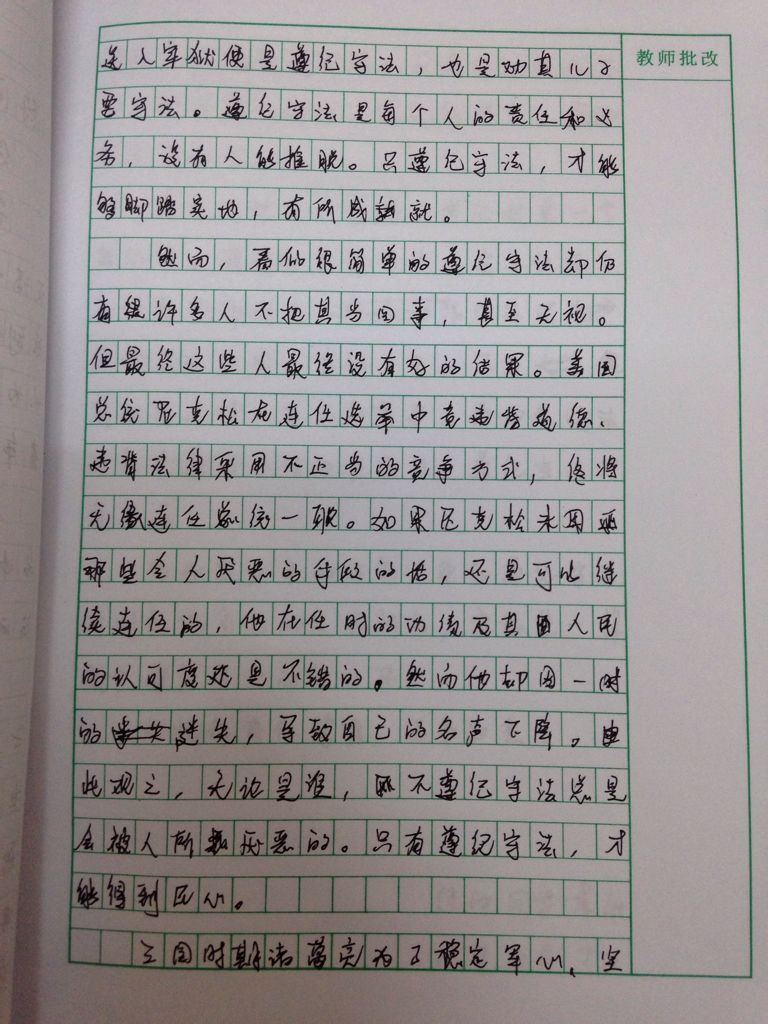 教师批改
送入牢狱便是遵纪守法，也是劝其儿子
要守法。遵纪守法是每个人的责任和义
务，没有人能推脱。只遵纪守法，才能
够脚踏实地，有所成就。
然而，看似很简单的遵纪守法却仍
有许多人不把其当回事，甚至无视。
但最终这些人最终没有好的结果。美国
总统尼克松在连任选举中竟违背道德、
违背法律采用不正当的竞争方式，终将
无缘连任总统一职。如果尼克松未用
那些令人厌恶的手段的话，还是可能继
续连任的，他在任时的功绩及其国人民
的认可度还是不错的。然而他却因一时
的迷失，导致自己的名声下降。由
此观之，无论是谁，不遵纪守法总是
会被人所厌恶的。只有遵纪守法，才
能得到民心。
三国时期诸葛亮为了稳定军心，坚